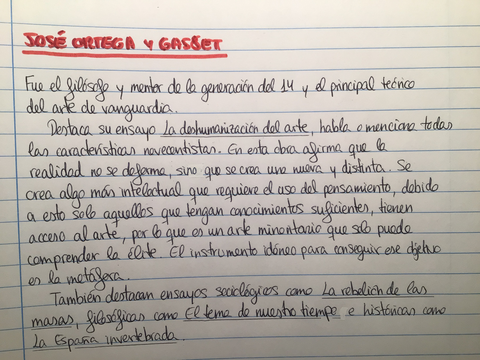 JOSÉ ORTEGA Y GASSET
Fue el filósofo y mentor de la generación del 14 y el principal teórico
del arte de vanguardia.
Destaca su ensayo La deshumanización del arte, habla o menciona todas
las características novecentistas. En esta obra afirma que la
realidad no se deforma, sino que se crea una nueva y distinta. Se
crea algo más intelectual que requiere el uso del pensamiento, debido
a esto solo aquellos que tengan conocimientos suficientes, tienen
acceso al arte, por lo que es un arte minoritario que solo puede
comprender la élite. El instrumento idóneo para conseguir ese objetivo
es la metáfora.
También destacan ensayos sociológicos como La rebelión de las
masas, filosóficas como El tema de nuestro tiempo e históricas como
La España invertebrada.